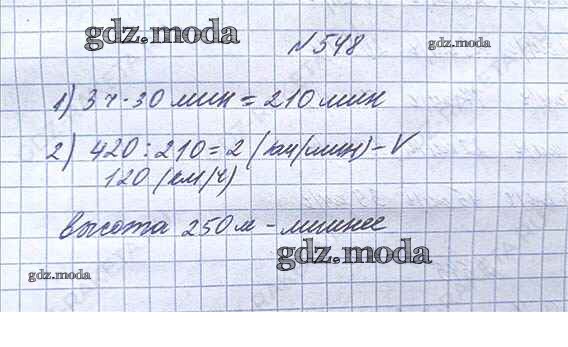 gdz.moda
№548
gdz.moda
1) 3 ч 30 мин = 210 мин
2) 420 : 210 = 2 (км/мин) - V
120 (км/ч)
высота 250 м - лишнее
gdz.moda
gdz.moda